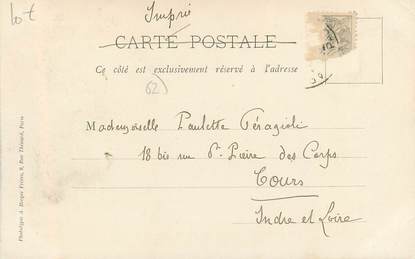 lot
Imprié
CARTE POSTALE
Ce côté est exclusivement réservé à l'adresse
62
Mademoiselle Paulette Féragioli
18 bis rue St Pierre des Corps
Tours
Indre et Loire
Phototypie A. Bergeret Frères, 8, Rue Thénard, Paris